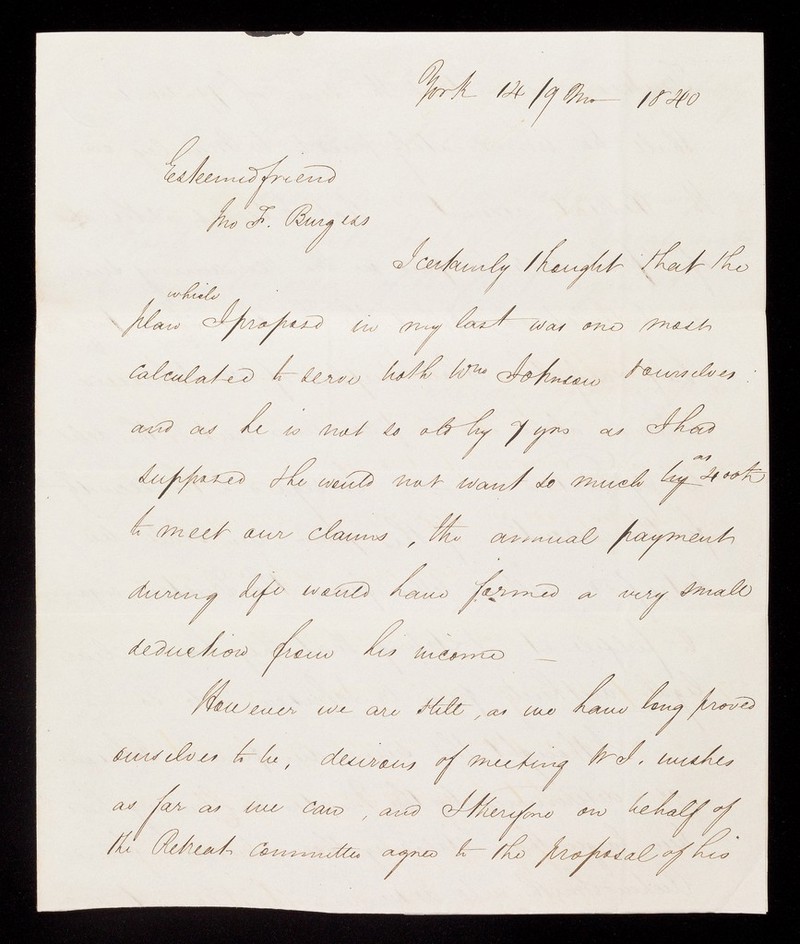 York 14/9 Mo 1840
Esteemed friend
Jno F. Burgess
I certainly thought that the
which
plan I proposed in my last was one most
calculated to serve both Wm Johnson & ourselves
and as he is not so old by 7 yrs as I had
as
supposed & he would not want so much by 400£
to meet our claims, the annual payment
during life would have formed a very small
deduction from his income —
However we are still, as we have long proved
ourselves to be, desirous of meeting W J. wishes
as far as we can, and I therefore on behalf of
the Retreat committee agree to the proposal of his